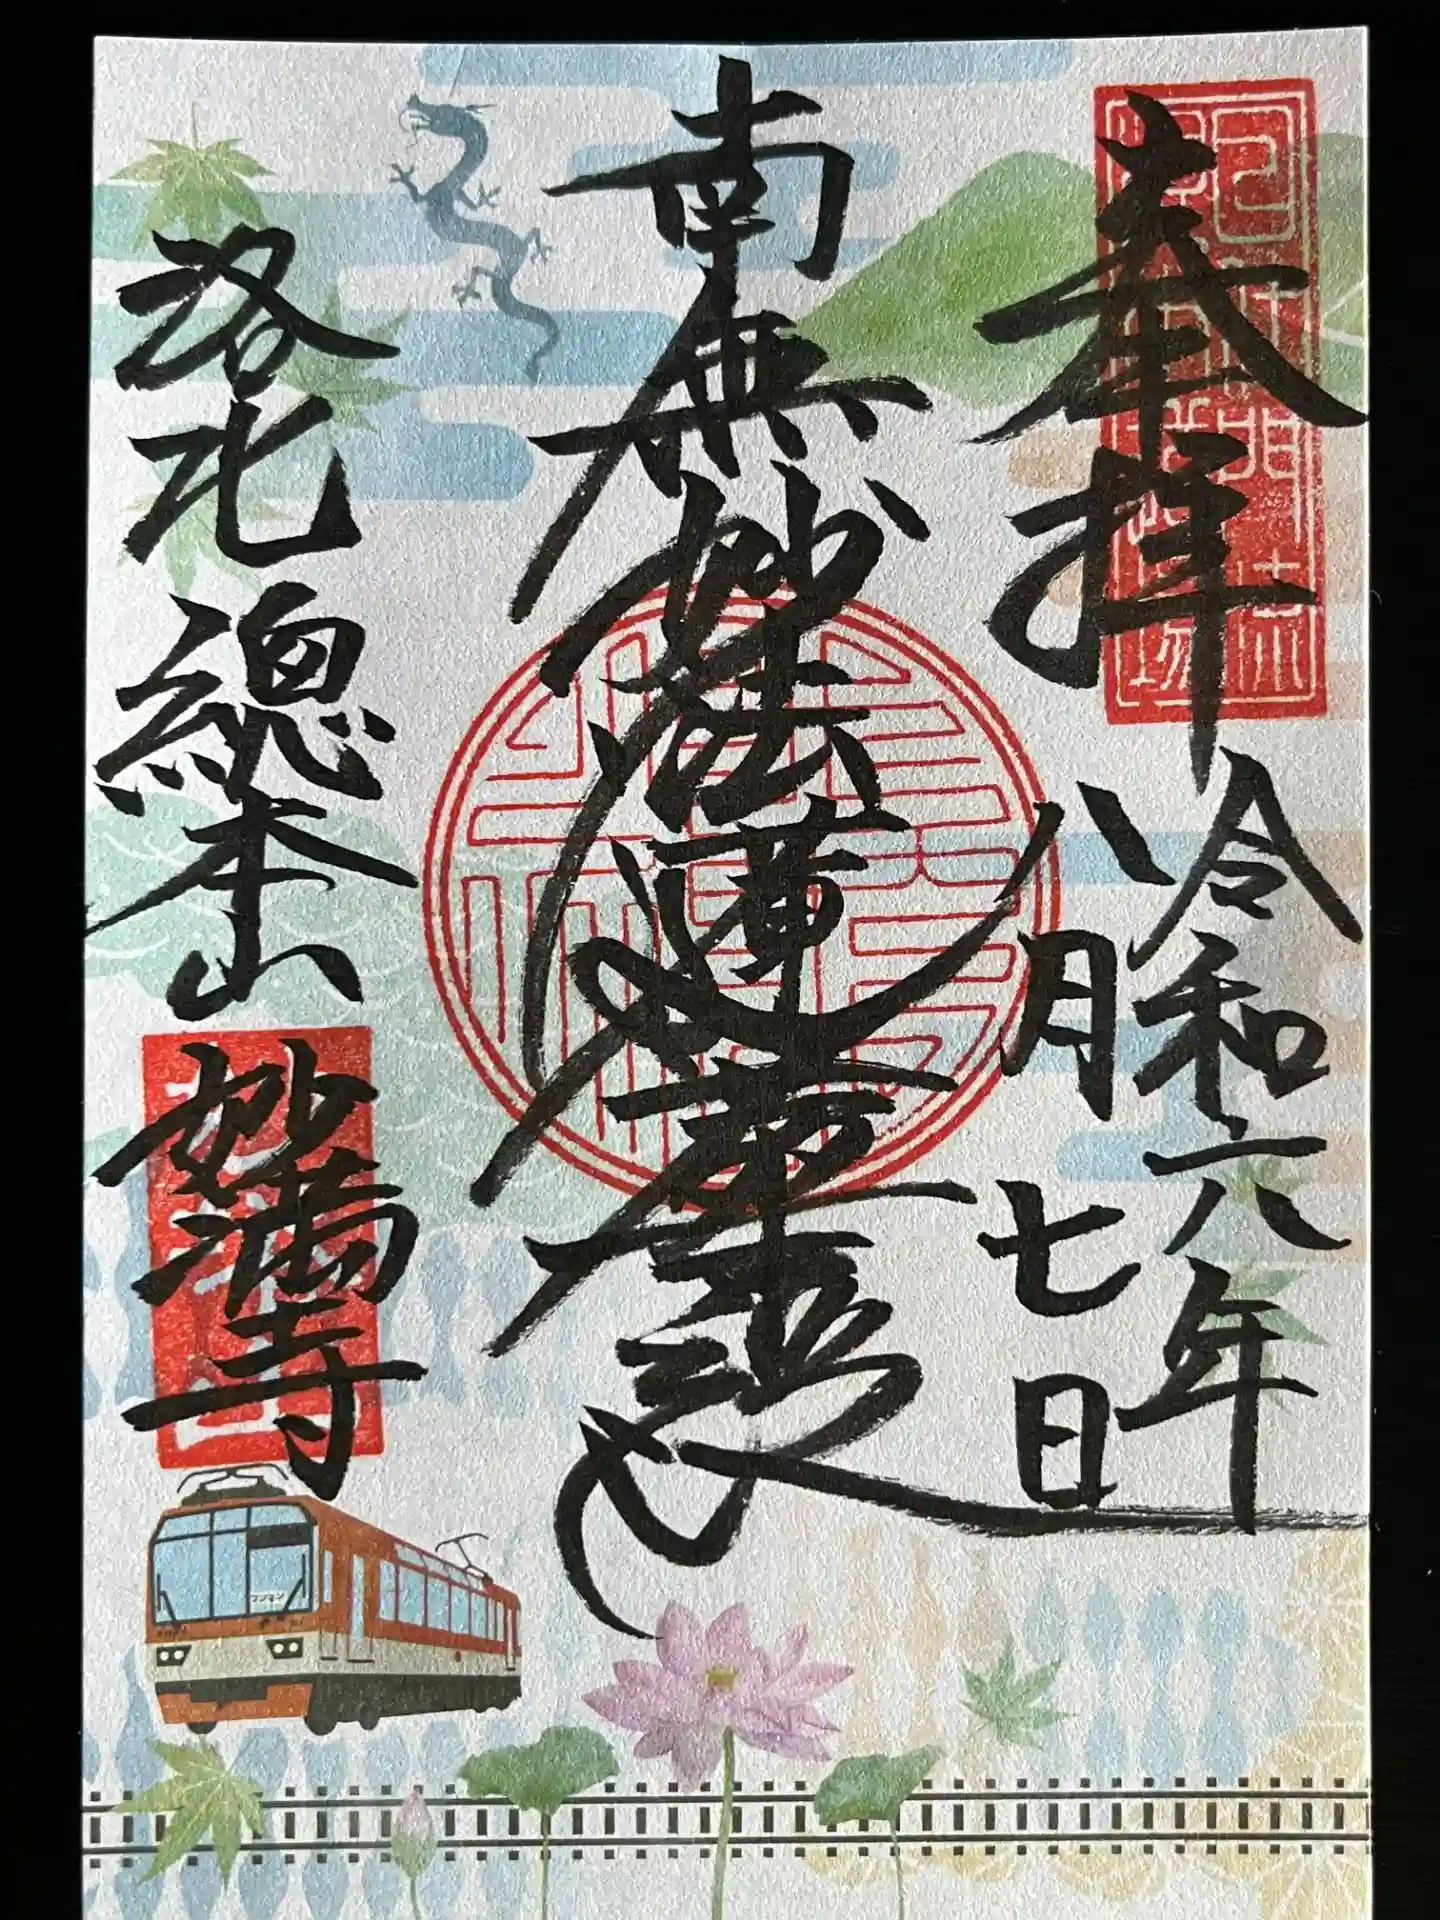 奉拝
令和六年
八月七日
南無妙法蓮華経
洛北 總本山
妙満寺
ワンマン